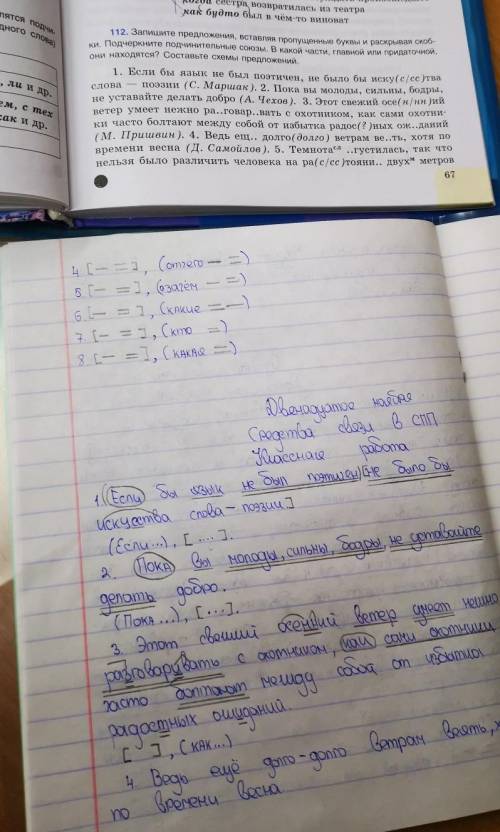 когда сестра возвратилась из театра
как будто был в чём-то виноват
лятся подчи-
дного слова)
, ли и др.
ем, с тех
как и др.
112. Запишите предложения, вставляя пропущенные буквы и раскрывая скоб-
ки. Подчеркните подчинительные союзы. В какой части, главной или придаточной,
они находятся? Составьте схемы предложений.
1. Если бы язык не был поэтичен, не было бы иску(с/сс)тва
слова — поэзии (С. Маршак). 2. Пока вы молоды, сильны, бодры,
не уставайте делать добро (А. Чехов). 3. Этот свежий осе(н/нн)ий
ветер умеет нежно ра..говар..вать с охотником, как сами охотни-
ки часто болтают между собой от избытка радос(?)ных ож..даний
(М. Пришвин). 4. Ведь ещ.. долго(долго) ветрам ве..ть, хотя по
времени весна (Д. Самойлов). 5. Темнота сз ..густилась, так что
нельзя было различить человека на ра(с/сс)тояни.. двух м метров
67
4 [— =], (отчего — =)
5 [— =], (зачем — =)
6 [— =], (какие = —)
7. [— =], (кто =)
8. [— =], (какая =)
Двенадцатое ноября
Средства связи в СПП
Классная работа
1. (Если бы язык не был поэтичен) [не было бы
искуства слова – поэзии]
(Если...), [ .... ].
2. Пока вы молоды, сильны, бодры, не уставайте
делать добро.
(Пока...), [....].
3. Этот свеший осенний ветер умеет нешно
разговаривать с охотником, как сами охотники
часто болтают между собой от избытка
радостных ошиданий.
[ ], (как...)
4 Ведь ещё долго-долго ветрам веять, х
по времени весна